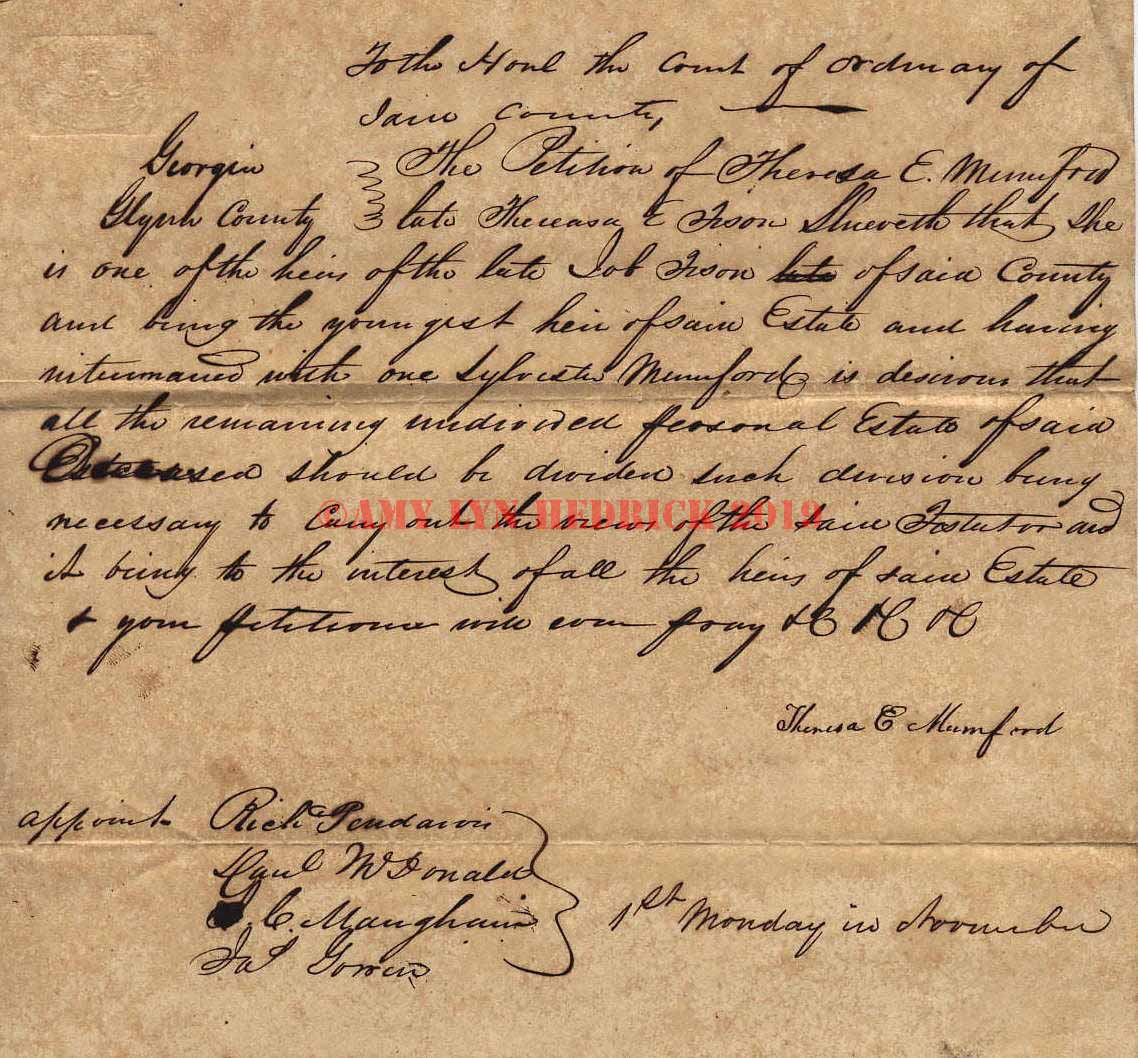 To the Honl the Court of ordinary of
said County,
Georgia The Petition of Theresa E. Mumford
Glynn County late Thereasa E Tison Sheweth that She
is one of the heirs of the late Job Tison late of said County
and being the youngest heir of said Estate and having
intermarried with one Sylvester Mumford is desirous that
all the remaining undivided personal Estate of said
Deceased should be divided such division being
necessary to carry out the views of the said Testator and
©AMY LYN HEDRICK 2019
it being to the interest of all the heirs of said Estate
& your petitioner will ever pray &C &C &C
Theresa E Mumford
appoint Richd Pendarvis
Danl McDonald
C. Maughain
Jas Gowen
1st Monday in November